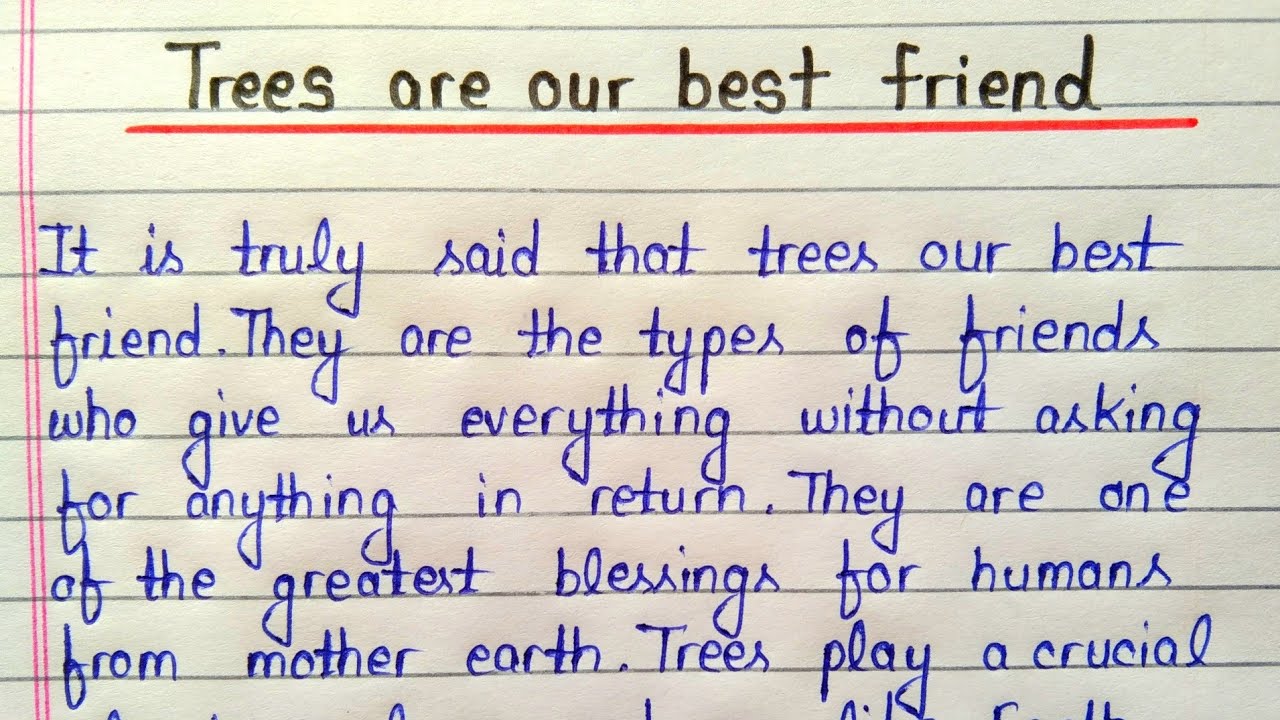 Trees are our best friend
It is truly said that trees our best
friend. They are the types of friends
who give us everything without asking
for anything in return. They are one
of the greatest blessings for humans
from mother earth. Trees play a crucial